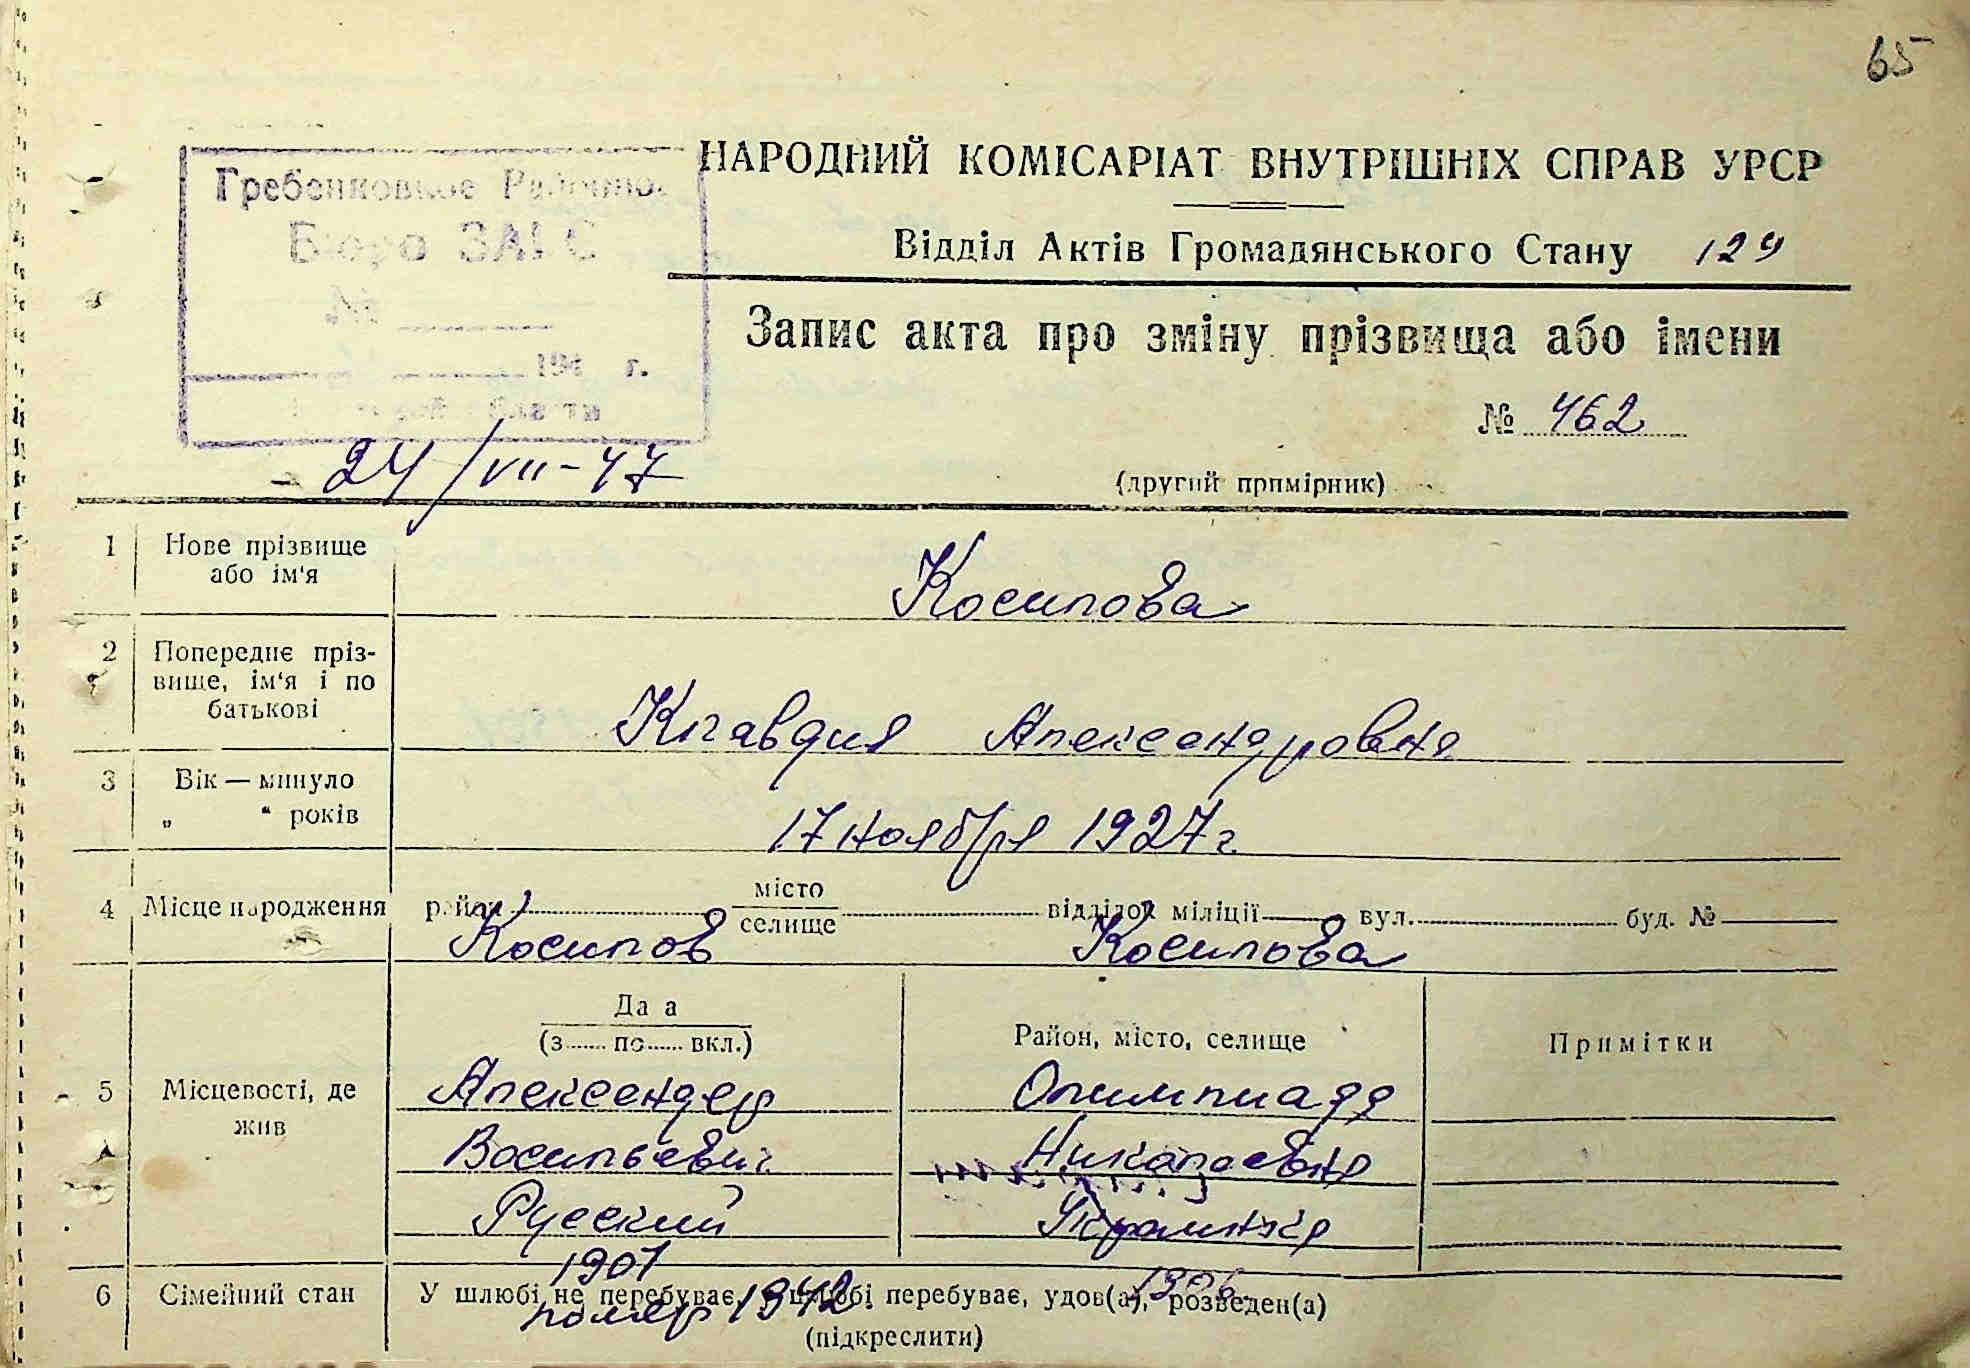 65
НАРОДНИЙ КОМІСАРІАТ ВНУТРІШНІХ СПРАВ УРСР
Бюро ЗАГС
№
194 г.
Відділ Актів Громадянського Стану 129
Запис акта про зміну прізвища або імени
№ 462
24/VII-47
(другий примірник)
1 Нове прізвище або ім'я
Косипова
2 Попереднє прізвище, ім'я і по батькові
Клавдия Александровна
3 Вік — минуло
„ “ років
17 ноября 1927 г.
4 Місце народження район місто
селище відділок міліції вул. буд. №
Косипов Косипова
Да а
(з...... по...... вкл.)
Район, місто, селище
Примітки
5 Місцевості, де жив
Александер Олимпиада
Васильевич Николаевна
Русский Украинка
1901 1906
6 Сімейний стан У шлюбі не перебуває, в шлюбі перебуває, удов(а), розведен(а)
помер 1942
(підкреслити)